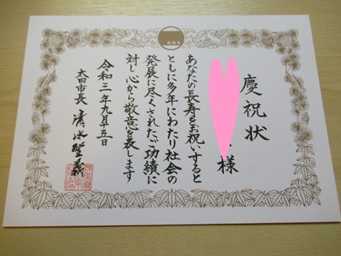 慶祝状
様
あなたの長寿をお祝いすると
ともに多年にわたり社会の
発展に尽くされたご功績に
対し心から敬意を表します
令和三年九月五日
太田市長 清水聖義